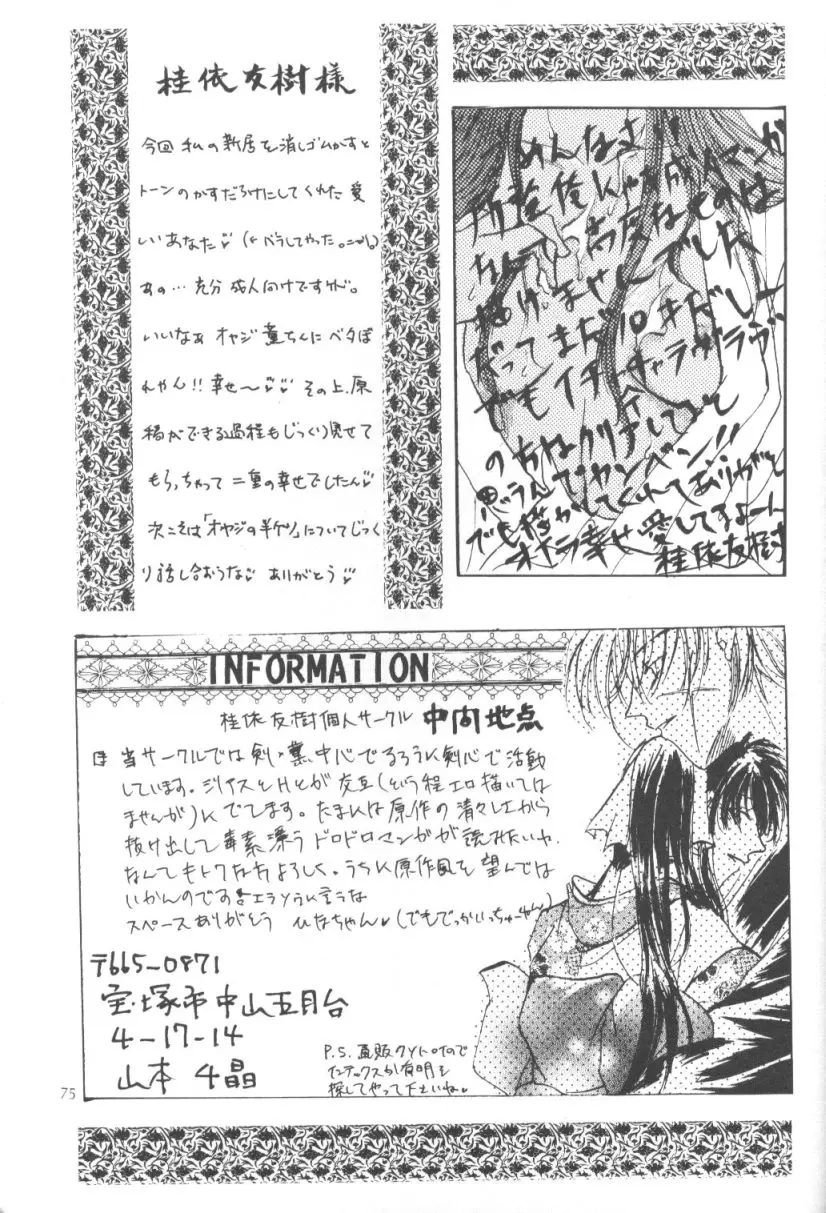 桂依友樹様
今回私の新居を消しゴムかすと
トーンのかすだらけにしてくれた愛
しいあなた
あの…充分成人向けですけど。
いいなぁ オヤジ薫ちんにベタぼ
れやん!!幸せ〜 その上、原
稿ができる過程もじっくり見せて
もらっちゃって二重の幸せでしたん
次こそは「オヤジの半ケツ」についてじっく
り話し合おうな ありがとう
ごめんなさい!!
所詮俺にゃ成人マンガ
なんて高度なものは
描けませんでした
だってまだ10才だしー
でもイチャイチャラヴラヴ
でも描かしてくれてありがとう
オイラ幸せ愛してるよーん
桂依友樹
INFORMATION
桂依友樹個人サークル 中間地点
当サークルでは剣・薫中心でるろうに剣心で活動
しています。シリアスとHとが交互(という程エロ描いては
ませんが)にでてます。たまには原作の清々しさから
抜け出して毒素漂うドロドロマンガが読みたいわ
なんてもトクな方よろしく。うちに原作風を望んでは
いかんのです。エラソうに言うな
スペースありがとう ひなちゃん(でもでっかいっちゅーねん)
〒665-0871
宝塚市中山五月台
4-17-14
山本 千晶
P.S. 直販クソトロなので
インデックスか有明を
探してやって下さいね
75